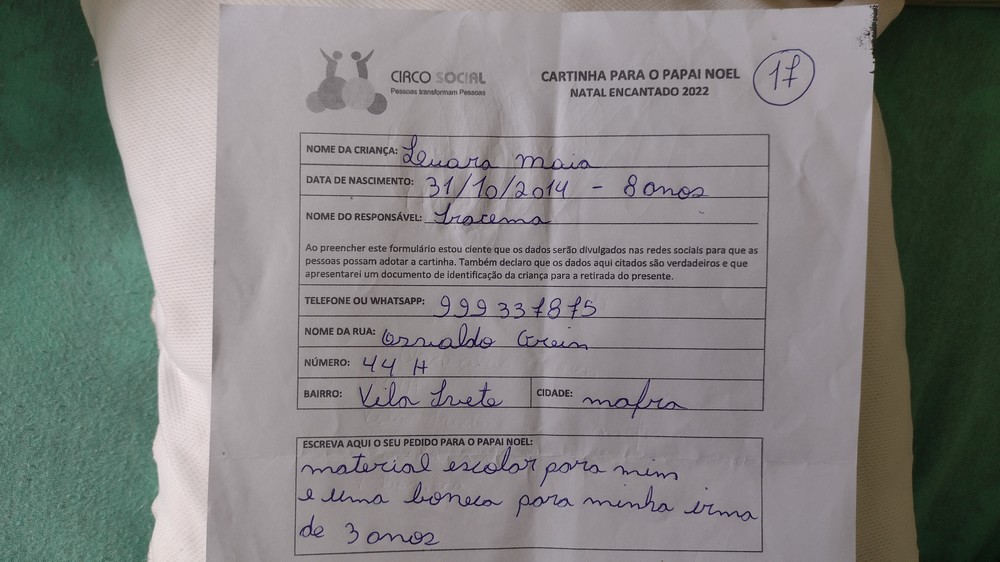 CIRCO SOCIAL
Pessoas transformam Pessoas
CARTINHA PARA O PAPAI NOEL
NATAL ENCANTADO 2022
17
NOME DA CRIANÇA: Leuara Maia
DATA DE NASCIMENTO: 31/10/2014 - 8 anos
NOME DO RESPONSÁVEL: Iracema
Ao preencher este formulário estou ciente que os dados serão divulgados nas redes sociais para que as
pessoas possam adotar a cartinha. Também declaro que os dados aqui citados são verdadeiros e que
apresentarei um documento de identificação da criança para a retirada do presente.
TELEFONE OU WHATSAPP: 999337875
NOME DA RUA: Osvaldo
NÚMERO: 44 A
BAIRRO: Vila Ivete
CIDADE: mafra
ESCREVA AQUI O SEU PEDIDO PARA O PAPAI NOEL:
material escolar para mim
e uma boneca para minha irma
de 3 anos